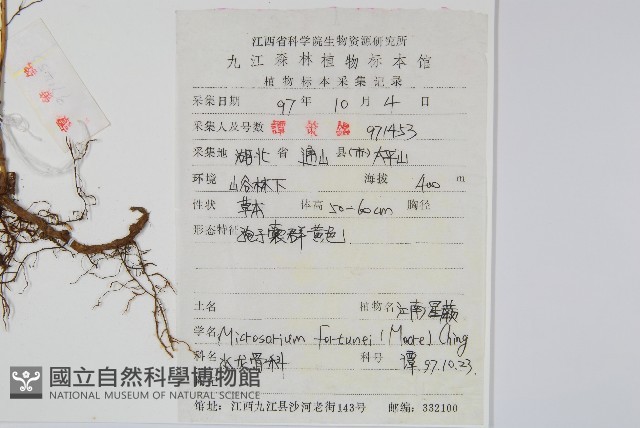 江西省科学院生物资源研究所
九江森林植物标本馆
植物标本采集记录
采集日期 97年 10月 4日
采集人及号数 971453
采集地 湖北省 通山县(市) 太平山
环境 山谷林下 海拔 400 m
性状 草本 体高 50-60cm 胸径
形态特征 孢子囊群黄色
土名 植物名 江南星蕨
学名 Microsorium fortunei (Moore) Ching
科名 水龙骨科 科号 谭 97.10.23.
國立自然科學博物館
NATIONAL MUSEUM OF NATURAL SCIENCE
馆址:江西九江县沙河老街143号 邮编:332100